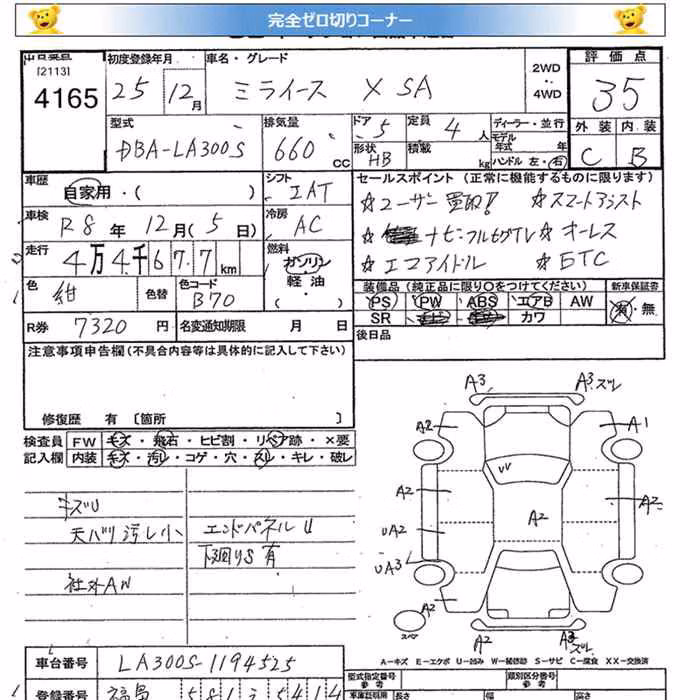 完全ゼロ切りコーナー
[2113]
4165
初度登録年月
25 12月
車名・グレード
ミライース X SA
2WD
・・
4WD
評価点
3.5
外装 内装
C B
型式
DBA-LA300S
排気量
660 cc
ドア 5
形状 HB
定員 4人
積載 kg
ディーラー・並行
モデル年式 年式
ハンドル 左・右
車歴
自家用・( )
シフト
IAT
車検
R8年 12月(5日)
冷房
AC
走行
4万4千677km
燃料
ガソリン
軽油
( )
色
紺
色替
色コード
B70
R券 7320円
名変通知期限 月 日
セールスポイント(正常に機能するものに限ります)
☆ユーザー買取! ☆スマートアシスト
☆ ナビ・フルセグTV ☆オーレス
☆エコアイドル ☆ETC
装備品(純正品に限り○をつけてください)
新車保証書
PS PW ABS エアB AW
有・無
SR ナビ カワ
後日品
注意事項申告欄(不具合内容等は具体的に記入して下さい)
修復歴 有 〔箇所 〕
検査員記入欄
FW キズ・飛石・ヒビ割・リペア跡・×要
内装 キズ・汚レ・コゲ・穴・スレ・キレ・破レ
キズU
天バリ汚レ小
エンドパネルU
下回りS有
社外AW
A3
A3 ズレ
A2
A1
UV
A2
A2
A2
UA2
UA3
A2
スペア
A2
A3 ズレ
A-キズ E-エクボ U-凹み W-補修跡 S-サビ C-腐食 XX-交換済
車台番号
LA300S-1194525
型式指定番号
参考
類別区分番号
参考
登録番号
福島 581 そ 5414
車庫証明用
長さ
幅
高さ